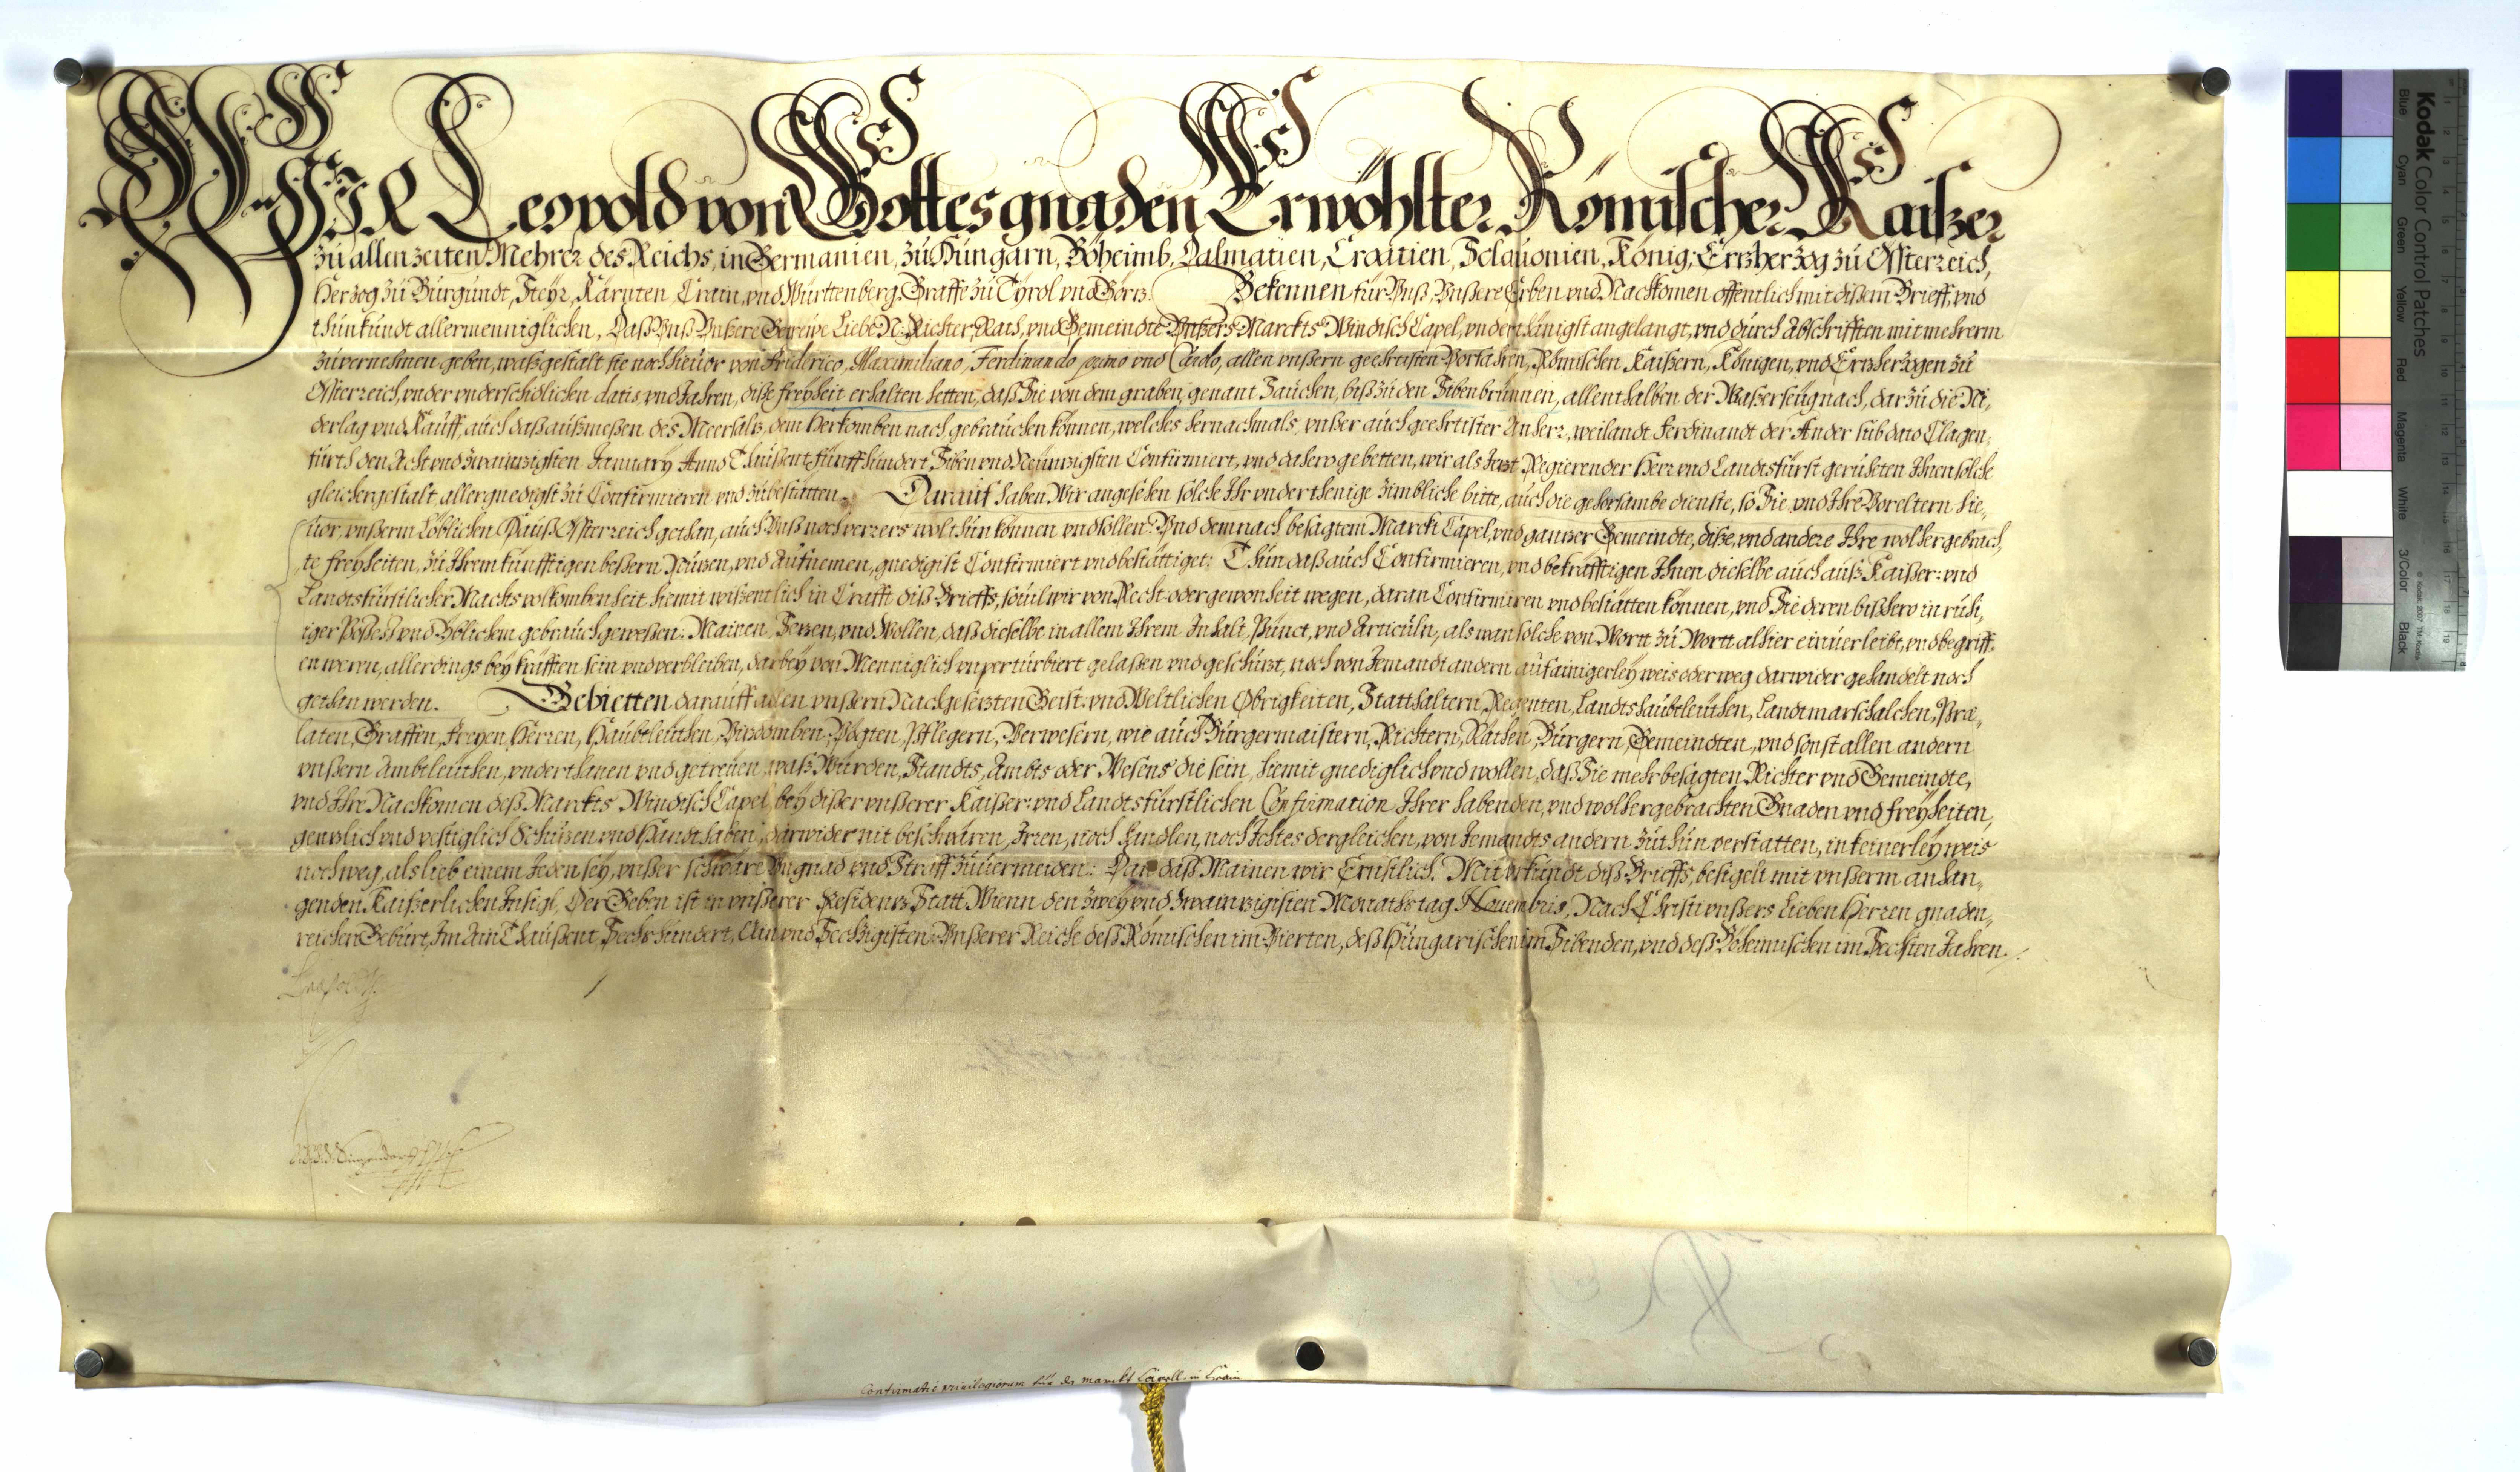 Wir Leopold von Gottes gnaden Erwöhlter Römischer Kaißer
zu allen zeiten Mehrer des Reichs, in Germanien, zu Hungarn, Böheimb, Dalmatien, Croatien, Sclauonien, König, Erzherzog zu Österreich,
Herzog zu Burgundt, Steyr, Kärnten, Crain, vnd Württenberg, Graffe zu Tyrol vnd Görz. Bekennen für Vnß, Vnßere Erben vnd Nachkomen offentlich mit disem Brieff, vnd
thun kundt allermenniglichen, Daß Vnß Vnßere Getreẅe Liebe N: Richter, Rath, vnd Gemeindte Vnßers Marckts Windisch Capel, vnderthänigst angelangt, vnd durch Abschrifften mit mehrerm
zuvernehmen geben, waßgestalt sie noch hieuor von Friderico, Maximiliano, Ferdinando primo vnd Carolo, allen vnßern geehrtisten Vorfahren, Römischen Kaißern, Königen, vnd Erzherzogen zu
Österreich, vnder vnderschidlichen datis vnd Jahren, diße freyheit erhalten hetten, daß Sie von dem graben, genant Zauchen, biß zu den Sibenbrunnen, allenthalben der Waßerseug nach, darzu die Ni„
derlag vnd Kauff, auch daß außmeßen des Meersalz, dem Herkomben nach gebrauchen können, welches hernachmals vnßer auch geehrtister Anherr, weilandt Ferdinandt der Ander sub dato Clagen„
furth den Acht vnd zwainzigisten January Anno Thaußent fünffhundert Siben vnd Neünzigisten Confirmiert, vnd dahero gebetten, wir als Jetzt Regierender Herr vnd Landtsfürst geruheten Ihnen solche
gleichergestalt allergnedigst zu Confirmieren vnd zubestätten. Darauf haben Wir angesehen solche Ihr vnderthenige zimbliche bitte, auch die gehorsambe dienste, so Sie vnd Ihre Voreltern hie„
uor, vnßerm Löblichen Hauß Österreich gethan, auch Vnß noch verrers wol thun können vnd sollen: Vnd demnach besagtem Marckt Capel, vnd ganzer Gemeindte, diße, vnd andere Ihre wolhergebrach„
te freyheiten, zu Ihrem künfftigen beßern Nuzen, vnd Aufnemen, gnedigist Confirmiert vnd bestättiget: Thun daß auch Confirmieren, vnd bekräfftigen Ihnen dieselbe auch auß Kaißer: vnd
Landtsfürstlicher Machts volkombenheit hiemit wißentlich in Crafft diß Brieffs, souil wir von Recht oder gewonheit wegen, daran Confirmiren vnd bestätten können, vnd Sie deren bißhero in ruh„
iger Posseß vnd Üblichem gebrauch geweßen. Mainen, Sezen, vnd Wollen, daß dieselbe in allem Ihrem Inhalt, Punct, vnd Articuln, als wan solche von Wortt zu Wortt alhier einuerleibt, vnd begriff„
en weren, allerdings bey kräfften sein vnd verbleiben, darbey von Menniglich vnperturbiert gelaßen vnd geschüzt, noch von Jemandt andern auf ainigerley weis oder weg darwider gehandelt noch
gethan werden. Gebietten darauff allen vnßern Nachgesezten Geist: vnd Weltlichen Obrigkeiten, Statthaltern, Regenten, Landtshaubtleüthen, Landtmarschalchen, Præ„
laten, Graffen, Freyen, Herren, Haubtleüthen, Vizdomben, Vögten, Pflegern, Verwesern, wie auch Burgermaistern, Richtern, Räthen, Burgern, Gemeindten, vnd sonst allen andern
vnßern Ambtleüthen, vnderthanen vnd getreüen, waß Würden, Standts, Ambts oder Wesens die sein, hiemit gnediglich vnd wollen, daß Sie mehrbesagten Richter vnd Gemeindte,
vnd Ihre Nachkomen deß Marckts Windisch Capel, bey dißer vnßerer Kaißer: vnd Landtsfürstlichen Confirmation Ihrer habenden, vnd wolhergebrachten Gnaden vnd freyheiten,
genzlich vnd vestiglich Schüzen vnd Handthaben, darwider nit beschwären, Irren, noch handlen, noch Ichtes dergleichen, von Jemandts andern zuthun verstatten, in keinerley weis
noch weg, als lieb einem Jeden sey, vnßer schwäre Vngnad vnd Straff zuuermeiden: Dan daß Mainen wir Ernstlich. Mit vrkundt diß Brieffs, besigelt mit vnßerm anhan„
genden Kaißerlichen Insigl, Der Geben ist in vnßerer Residenz Statt Wienn den zwey vnd zwainzigisten Monathstag Nouembris, Nach Christi vnßers lieben Herren gnaden„
reichen Geburt, Im Ain Thaußent, Sechshundert, Ain vnd Sechzigisten, Vnßerer Reiche deß Römischen im Vierten, deß Hungarischen im Sibenden, vnd deß Böhemischen im Sechsten Jahren.
Leopoldt
Confirmatio privilegiorum für den marckt Cappell in Crain
Kodak Color Control Patches
Blue Cyan Green Yellow Red Magenta White 3/Color Black